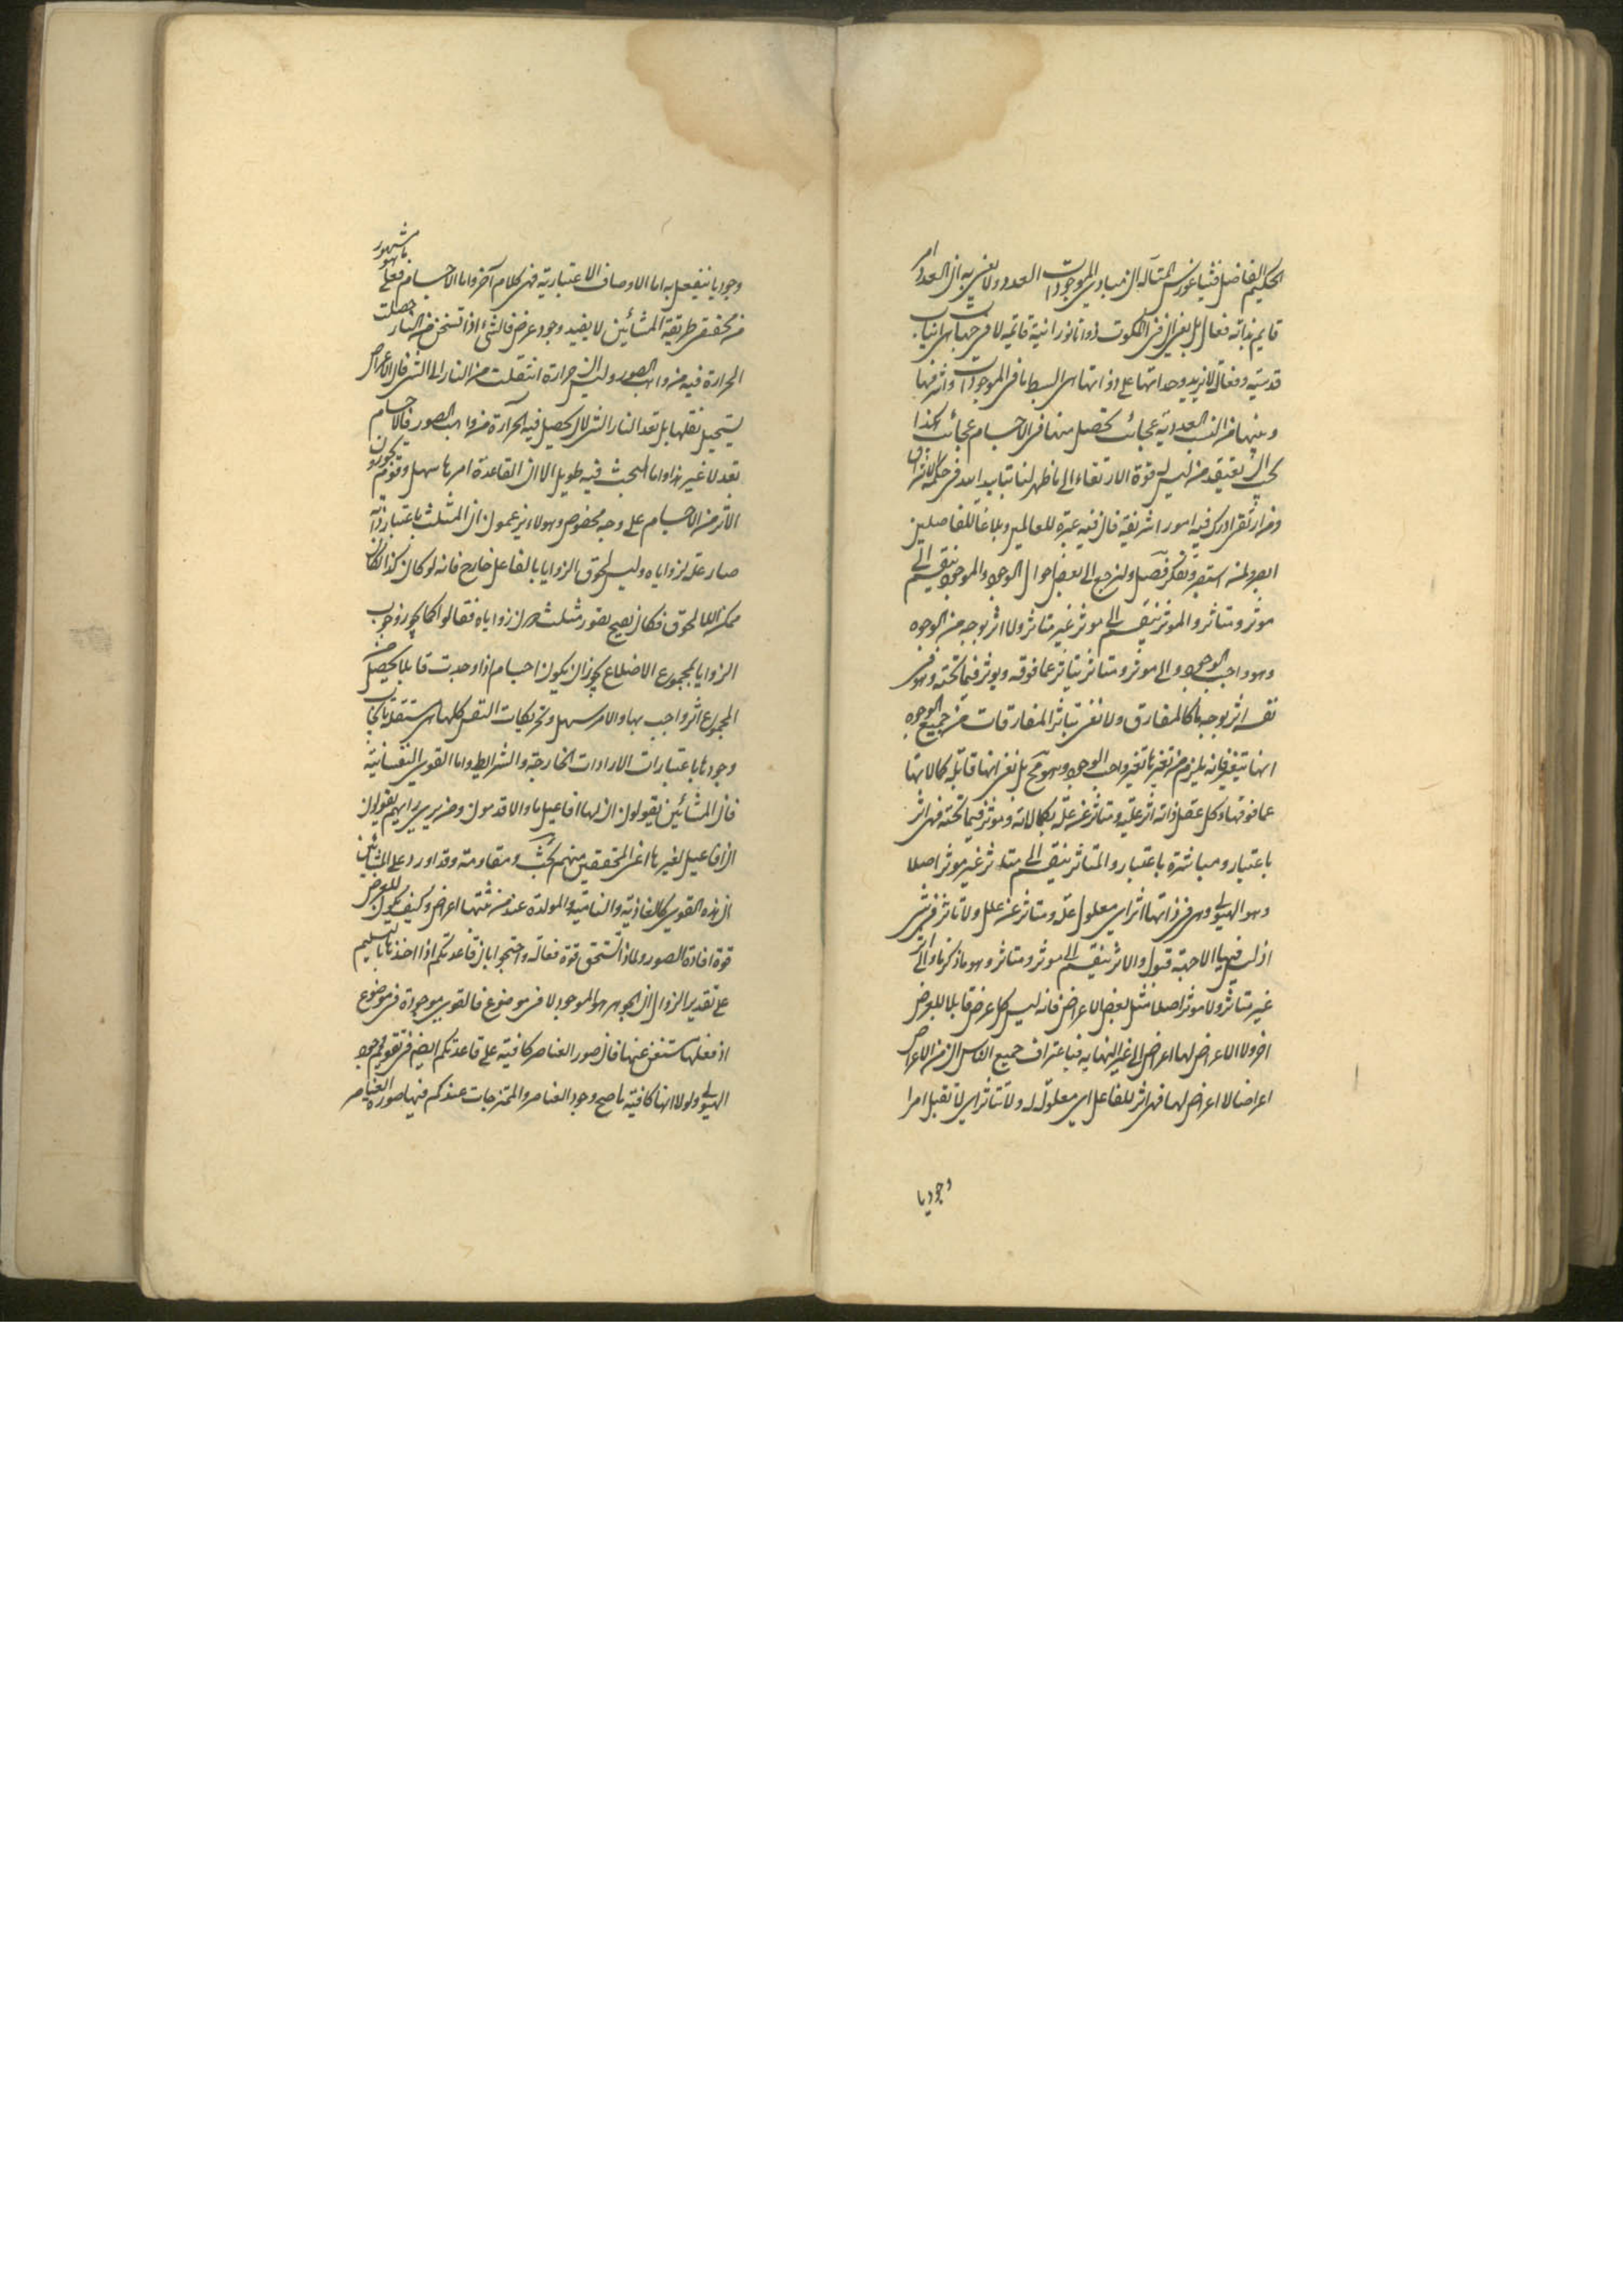 الحكيم الفاضل فيثاغورس المتآله ان مبادى الموجودات العدد ولا يعنى به ان العدد امر
قايم بذاته فعال بل يعنى ان فى الملكوت ذوات نورانية قايمة لا فى جهات هى انيات
قدسية وفعالة لا يزيد وحدانتها على ذواتها هى ابسط ما فى الموجودات واشرفها
وبينها من النسب العددية عجائب تحصل منها فى الاجسام عجائب هكذا
يجب ان يعتقد من ليس له قوة الارتقاء الى ما ظهر لنا بتاييد الله فى حكمة الاشراق
ومن ارتقى ادرك فيه امورا شريفة فان فيه عبرة للعالمين وبلاغا للفاضلين
وتفكر فصل ولنرجع الى بعض احوال الوجود والموجود ينقسم الى
موثر ومتاثر والموثر ينقسم الى موثر غير متاثر ولا اثر بوجه من الوجوه
وهو واجب الوجود والى موثر ومتاثر يتاثر عما فوقه ويوثر فيما تحته وهو فى
نفسه اثر بوجه ما كالمفارق ولا نعنى بتاثر المفارقات من جميع الوجوه
انها تتغير فانه يلزم من تغيرها تغير واجب الوجود وهو مح بل نعنى انها قابلة كمالاتها
عما فوقها وكل عقل ذاته اثر علته ومتاثر عن علته بكمالاته وموثر فيما تحته فهى اثر
باعتبار ومباشرة باعتبار والمتاثر ينقسم الى متاثر غير موثر اصلا
وهو الهيولى وهى فى ذاتها اثر اى معلول علة ومتاثر عن علل ولا تاثر فى شى
اذ ليس فيها الا جهة قبول والاثر ينقسم الى موثر ومتاثر وهو ما ذكرنا والى اثر
غير متاثر ولا موثر اصلا مثل بعض الاعراض فانه ليس كل عرض قابلا للعرض
اخر ولا الاعراض لها اعراض الى غير النهاية فباعتراف جميع الناس ان من الاعراض
اعراضا لا اعراض لها فهى اثر للفاعل اى معلول له ولا تتاثر اى لا تقبل امرا
وجوديا
وجوديا ينفعل به اما الاوصاف الاعتبارية فهى كلام آخر واما الاجسام فعلى ما هو مشهور
من محققى طريقة المشائين لا يفيد وجود عرض فالشئ اذا تسخن من النار حصلت
الحرارة فيه من واهب الصور وليس ان حرارة انتقلت من النار الى الشئ فان الاعراض
يستحيل نقلها بل تعد النار الشئ لان يحصل فيه الحرارة من واهب الصور فالاجسام
تعد لا غير هذا واما البحث فيه طويل الا ان القاعدة امرها سهل وقوم يجوزون
الاثر من الاجسام على وجه مخصوص وهولاء يزعمون ان المثلث باعتبار ذاته
صار علة لزواياه وليس لحوق الزوايا بالفاعل خارج فانه لو كان كذا لكان
ممكن اللالحوق فكان يصح تصور مثلث دون زواياه فقالوا كما يجوز وجوب
الزوايا لمجموع الاضلاع يجوز ان يكون اجسام اذا وجدت قابلا يحصل من
المجموع اثر واجب بها والامر سهل وتحريكات النفس كلها هى مستقلة بايجاب
وجودها باعتبارات الارادات الخارجة والشرايط واما القوى النفسانية
فان المشائين يقولون ان لها افاعيل ما والاقدمون ومن يرى رايهم يقولون
ان افاعيل لغيرها اعنى المحققين منهم بحث ومقاومة وقد اورد على المشائين
ان هذه القوى كالغاذية والنامية والمولدة عند من شبهها اعراض وكيف يكون للعرض
قوة افادة الصور ولماذا استحق قوة فعالة واحتجوا بان قاعدتكم اذا اخذناها بالتسليم
على تقدير الزوال ان الجوهر هو الموجود لا فى موضوع فالقوى موجودة فى موضوع
اذ فعلها مستغن عنها فان صور العناصر كافية على قاعدتكم ايضا فى تقويم وجود
الهيولى ولولا انها كافية ما صح وجود العناصر والممتزجات عندكم فيها صورة العناصر